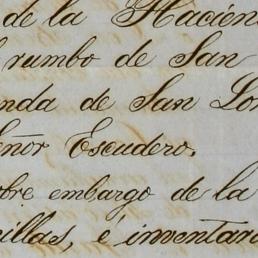 de la Hacien
l rumbo de San
nda de San Lor
eñor Escudero.
obre embargo de la
nillas, é inventar